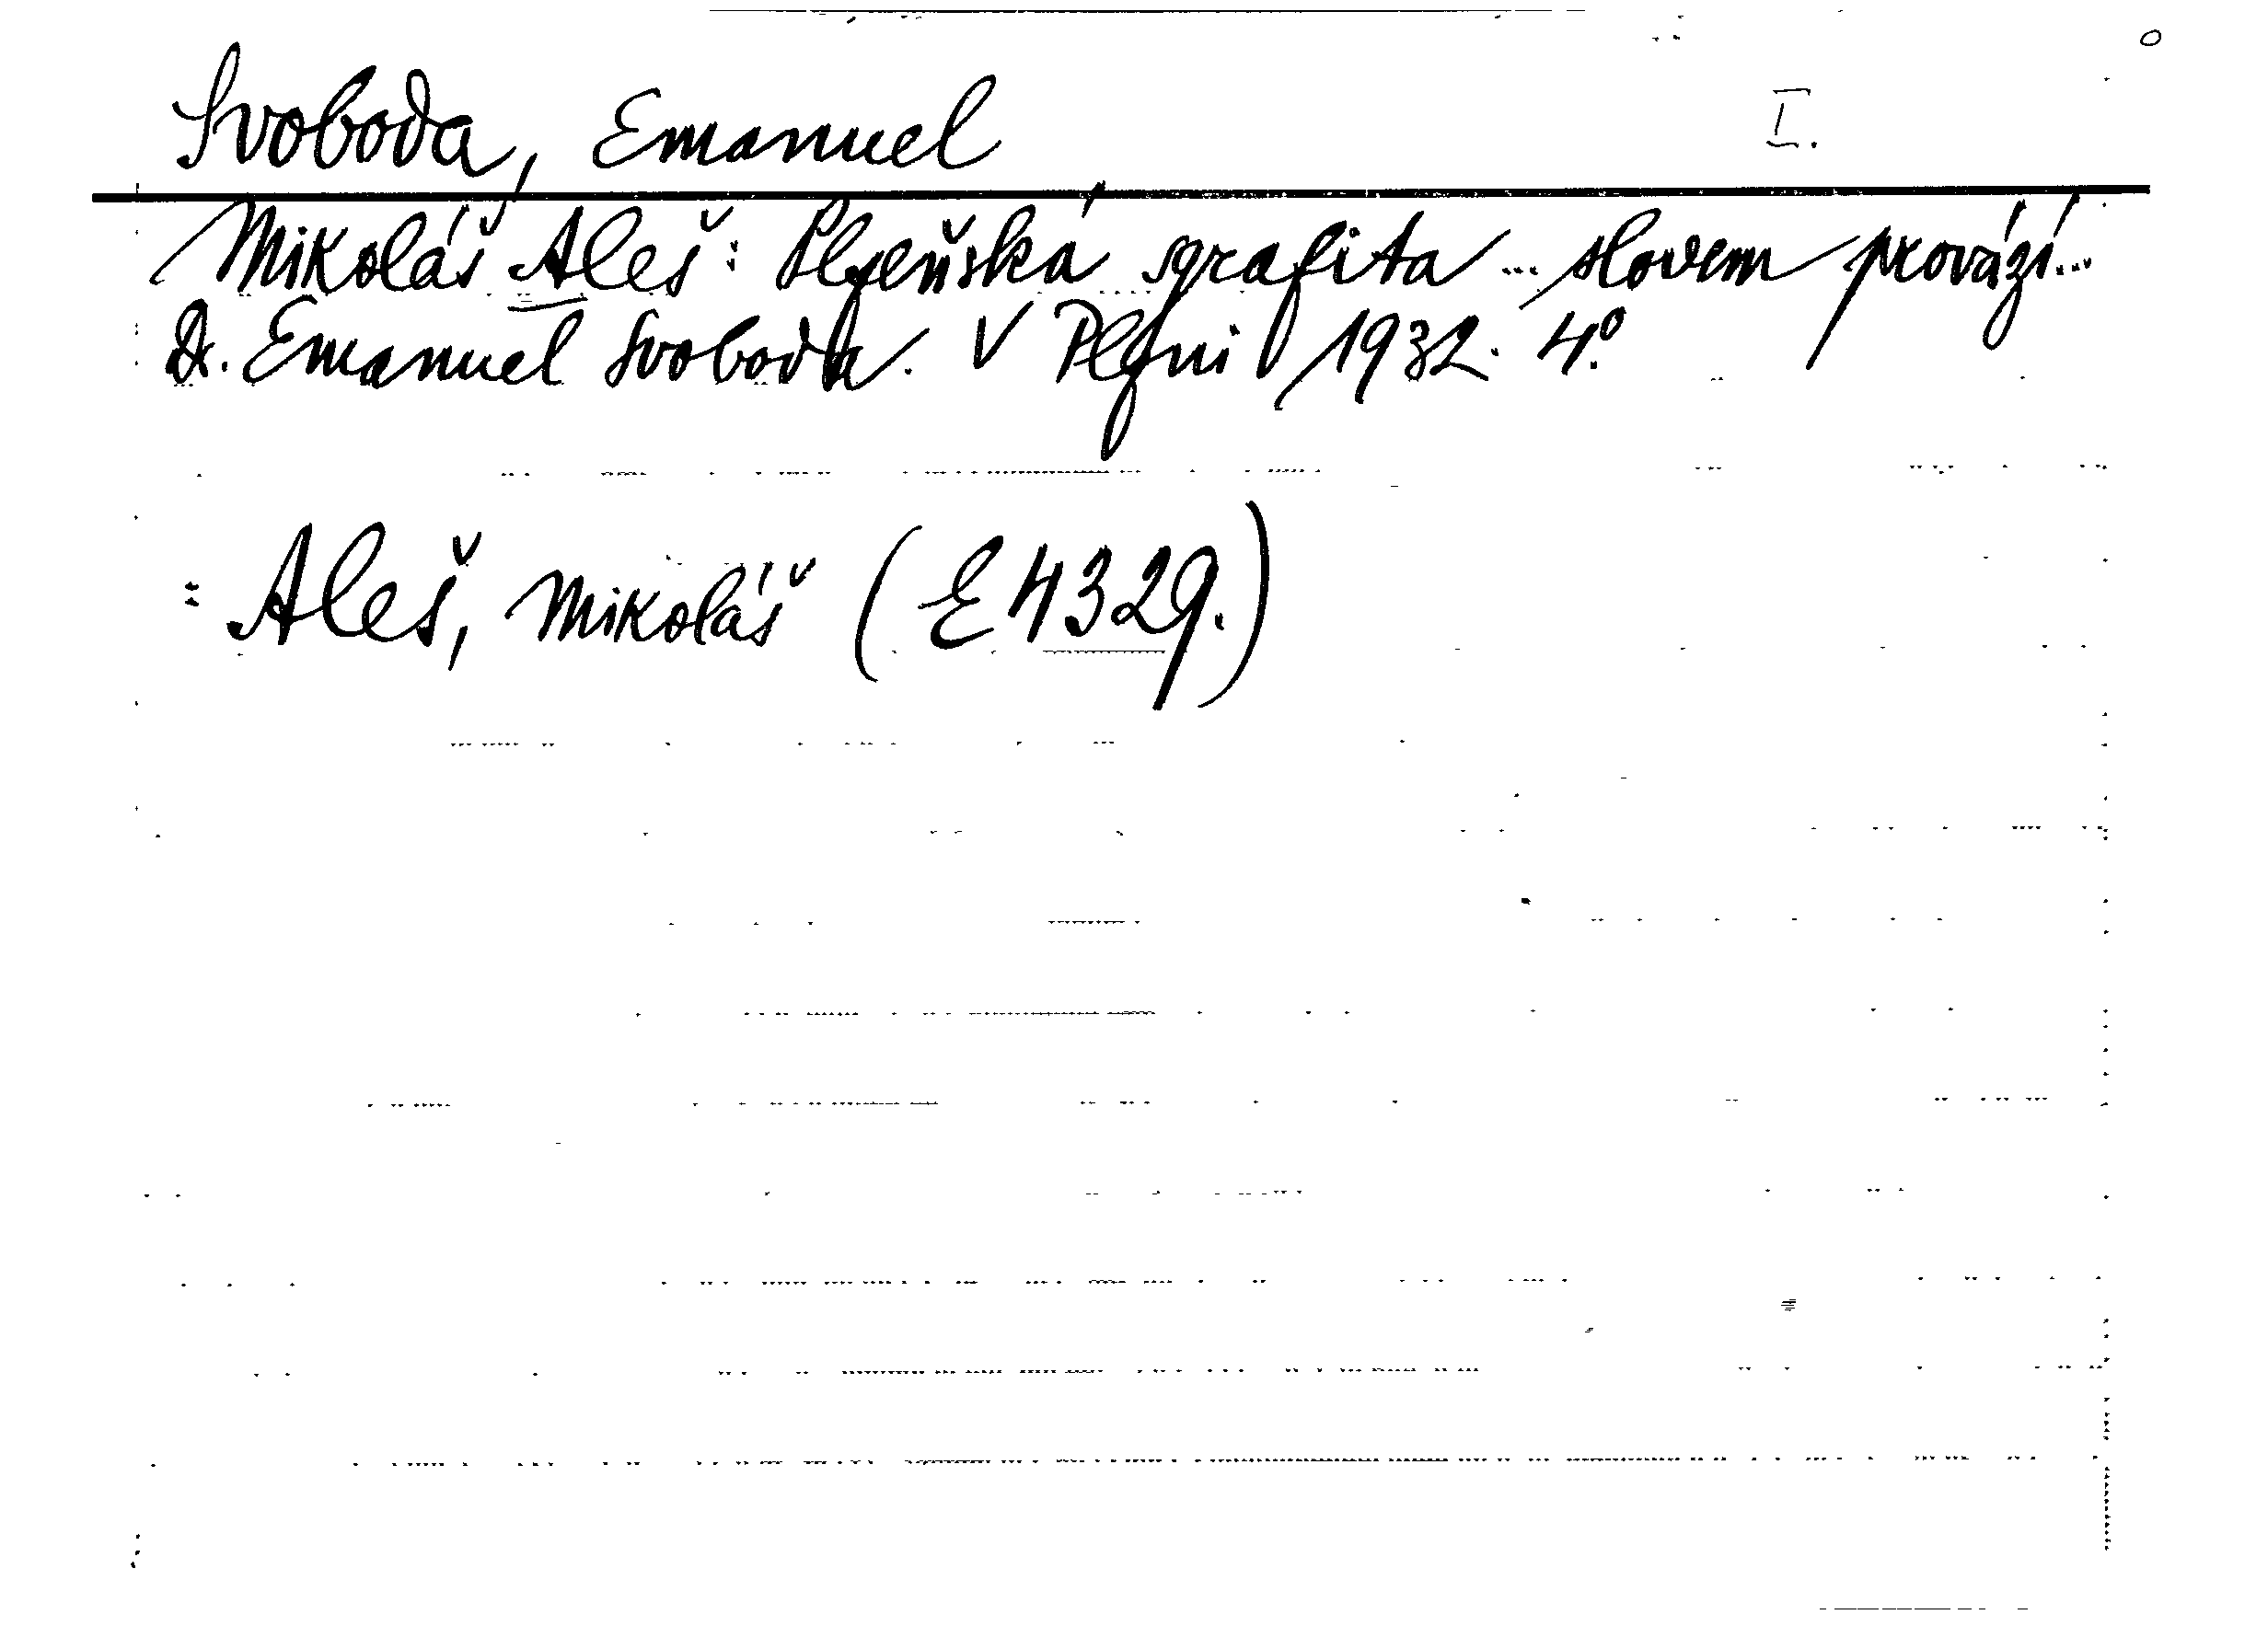 Svoboda, Emanuel I.
Mikoláš Aleš: Plzeňská sgrafita ... slovem provází...
Dr. Emanuel Svoboda. V Plzni 1932. 4.º
= Aleš, Mikoláš (E 4329.)